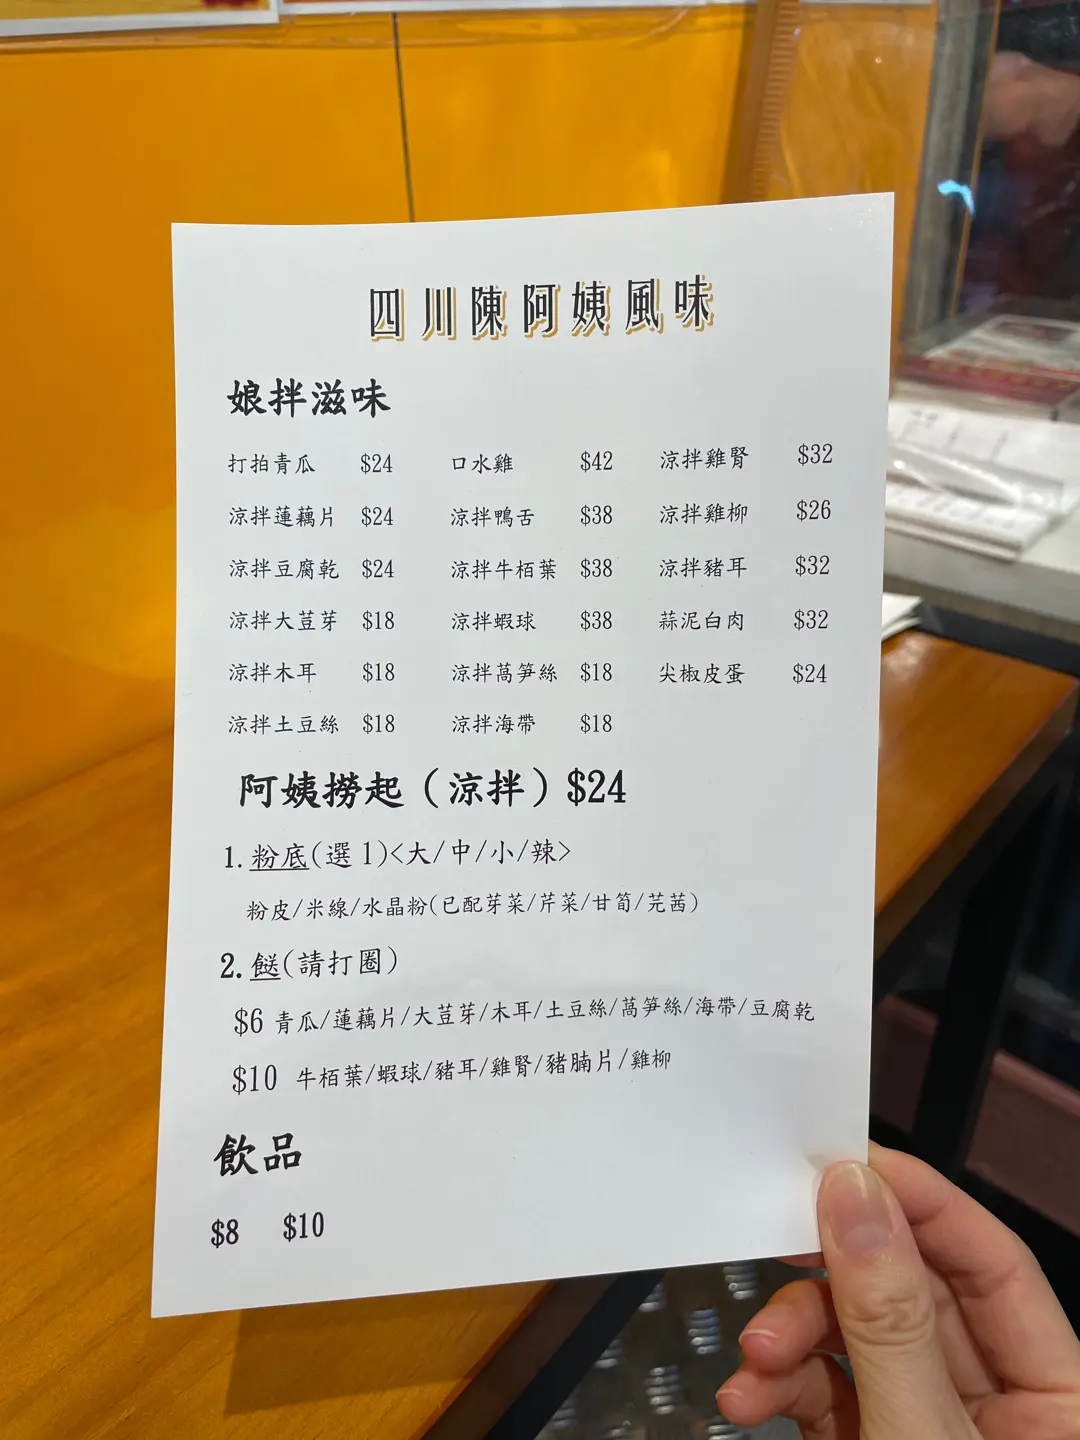 四川陳阿姨風味
娘拌滋味
打拍青瓜 $24 口水雞 $42 涼拌雞腎 $32
涼拌蓮藕片 $24 涼拌鴨舌 $38 涼拌雞柳 $26
涼拌豆腐乾 $24 涼拌牛栢葉 $38 涼拌豬耳 $32
涼拌大荳芽 $18 涼拌蝦球 $38 蒜泥白肉 $32
涼拌木耳 $18 涼拌萵笋絲 $18 尖椒皮蛋 $24
涼拌土豆絲 $18 涼拌海帶 $18
阿姨撈起(涼拌) $24
1. 粉底(選 1)<大/中/小/辣>
粉皮/米線/水晶粉(已配芽菜/芹菜/甘筍/芫茜)
2. 餸(請打圈)
$6 青瓜/蓮藕片/大荳芽/木耳/土豆絲/萵笋絲/海帶/豆腐乾
$10 牛栢葉/蝦球/豬耳/雞腎/豬腩片/雞柳
飲品
$8 $10